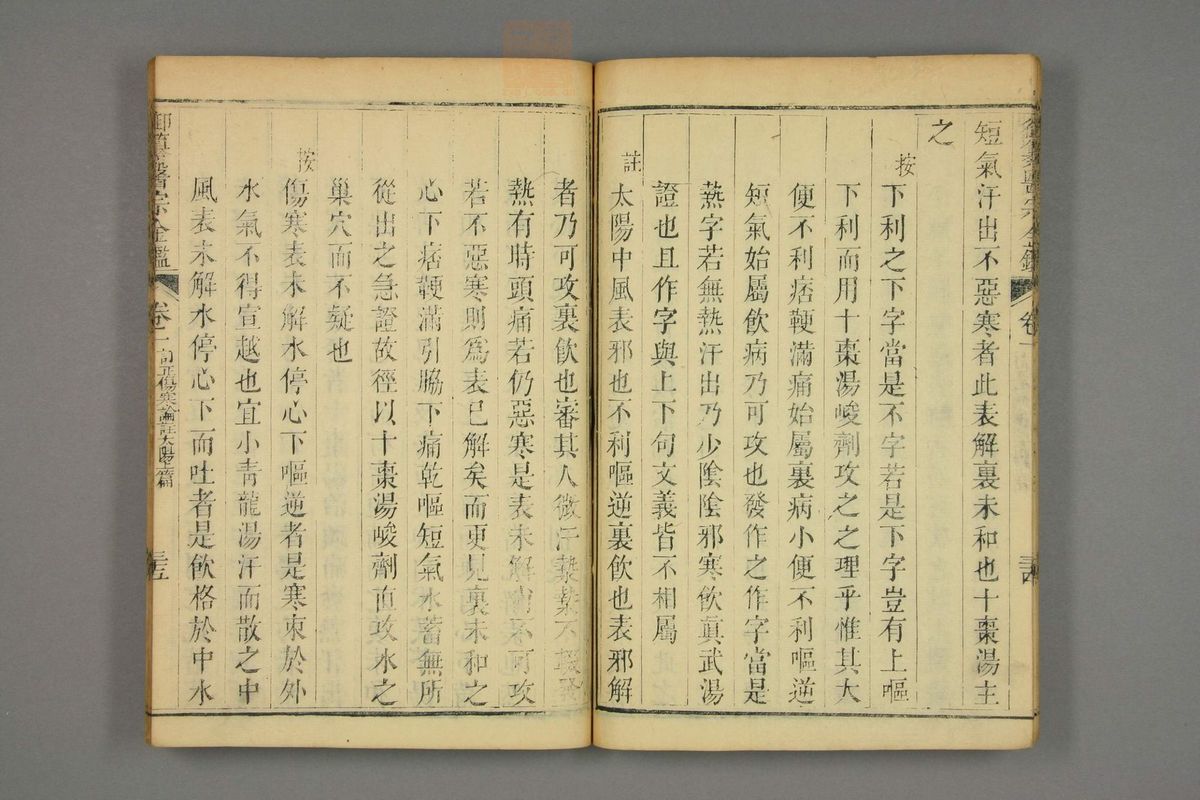 短氣汗出不惡寒者此表解裏未和也十棗湯主
之
按
下利之下字當是不字若是下字豈有上嘔
下利而用十棗湯峻劑攻之之理乎惟其大
便不利痞鞕滿痛始屬裏病小便不利嘔逆
短氣始屬飲病乃可攻也發作之作字當是
熱字若無熱汗出乃少陰陰邪寒飲眞武湯
證也且作字與上下句文義皆不相屬
註
太陽中風表邪也不利嘔逆裏飲也表邪解
者乃可攻裏飲也審其人微汗漐漐不輟發
熱有時頭痛若仍惡寒是表未解尙不可攻
若不惡寒則爲表已解矣而更見裏未和之
心下痞鞕滿引脇下痛乾嘔短氣水蓄無所
從出之急證故徑以十棗湯峻劑直攻水之
巢穴而不疑也
按
傷寒表未解水停心下嘔逆者是寒束於外
水氣不得宣越也宜小青龍湯汗而散之中
風表未解水停心下而吐者是飲格於中水
御纂醫宗金鑑
卷一
訂正傷寒論註太陽上篇
三五
御纂醫宗金鑑
卷一
三四